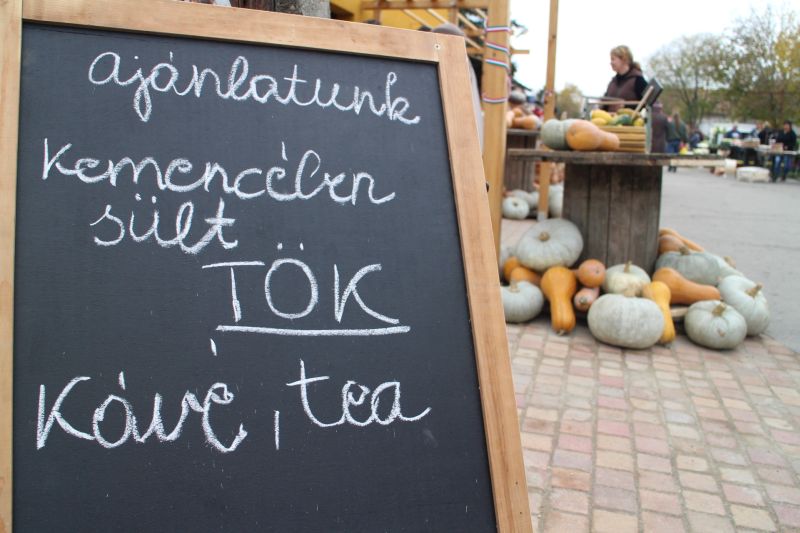 ajánlatunk
kemencében
sült
TÖK
Kávé, tea